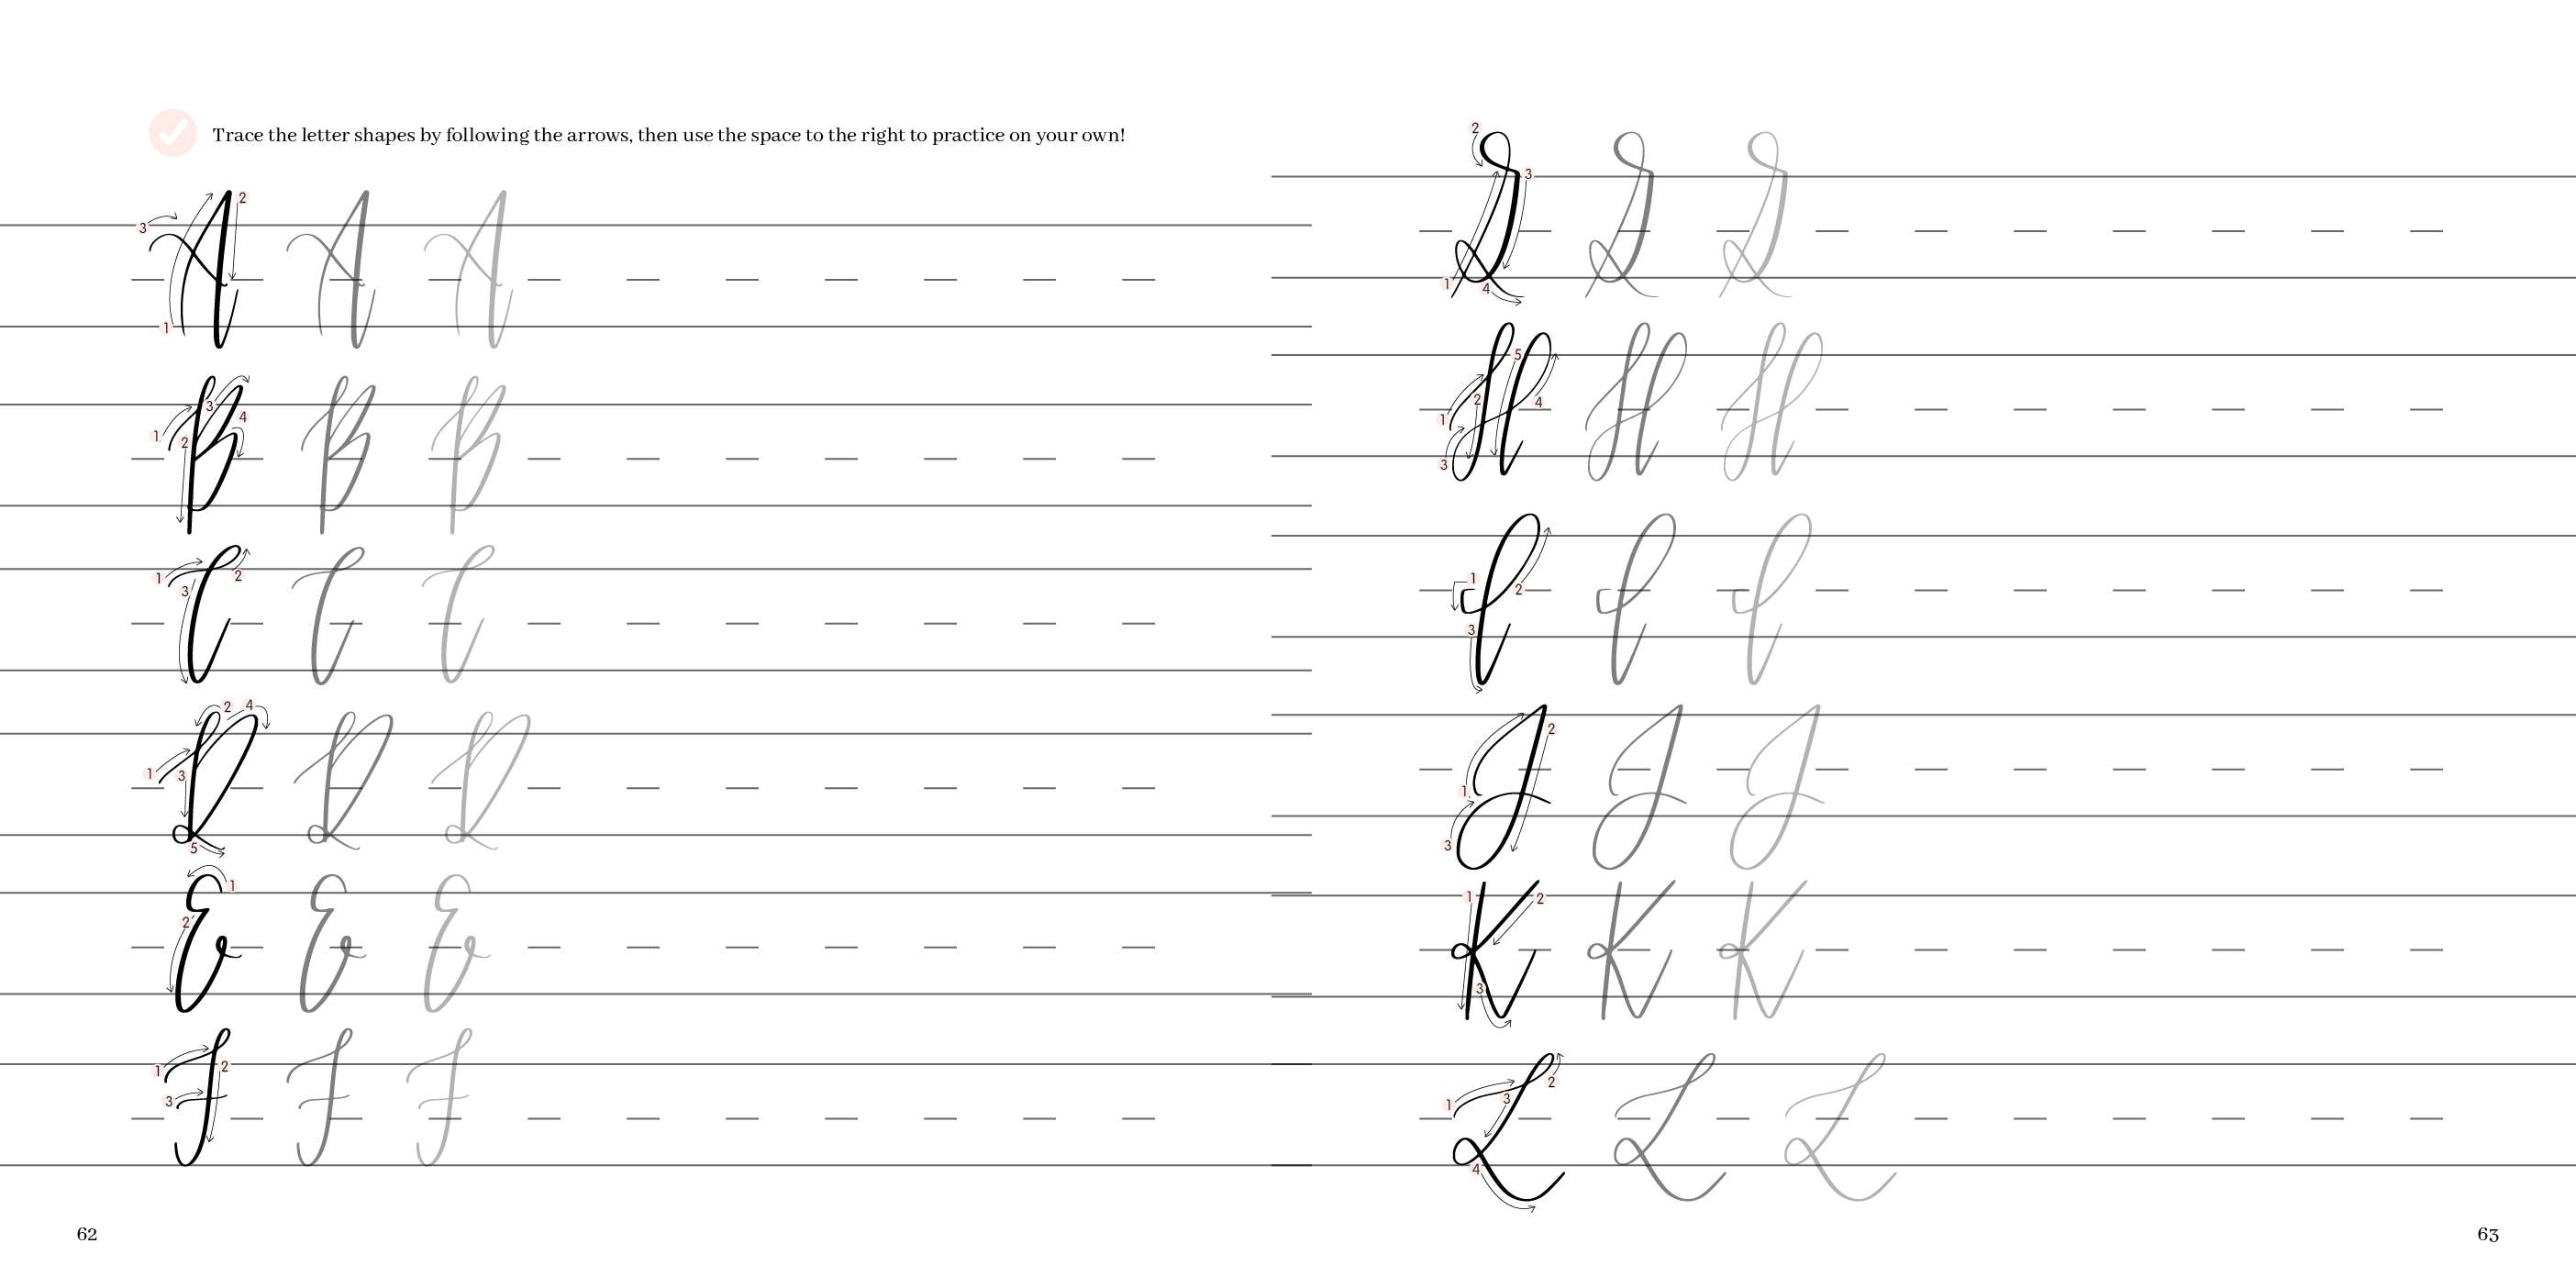 Trace the letter shapes by following the arrows, then use the space to the right to practice on your own!
3 1 2 A A A
1 2 3 4 B B B
1 3 2 C C C
1 2 3 4 5 D D D
1 2 E E E
1 2 3 F F F
62
2 3 1 4 G G G
1 2 3 5 4 H H H
1 2 3 I I I
1 2 3 J J J
1 2 3 K K K
1 2 3 4 L L L
63